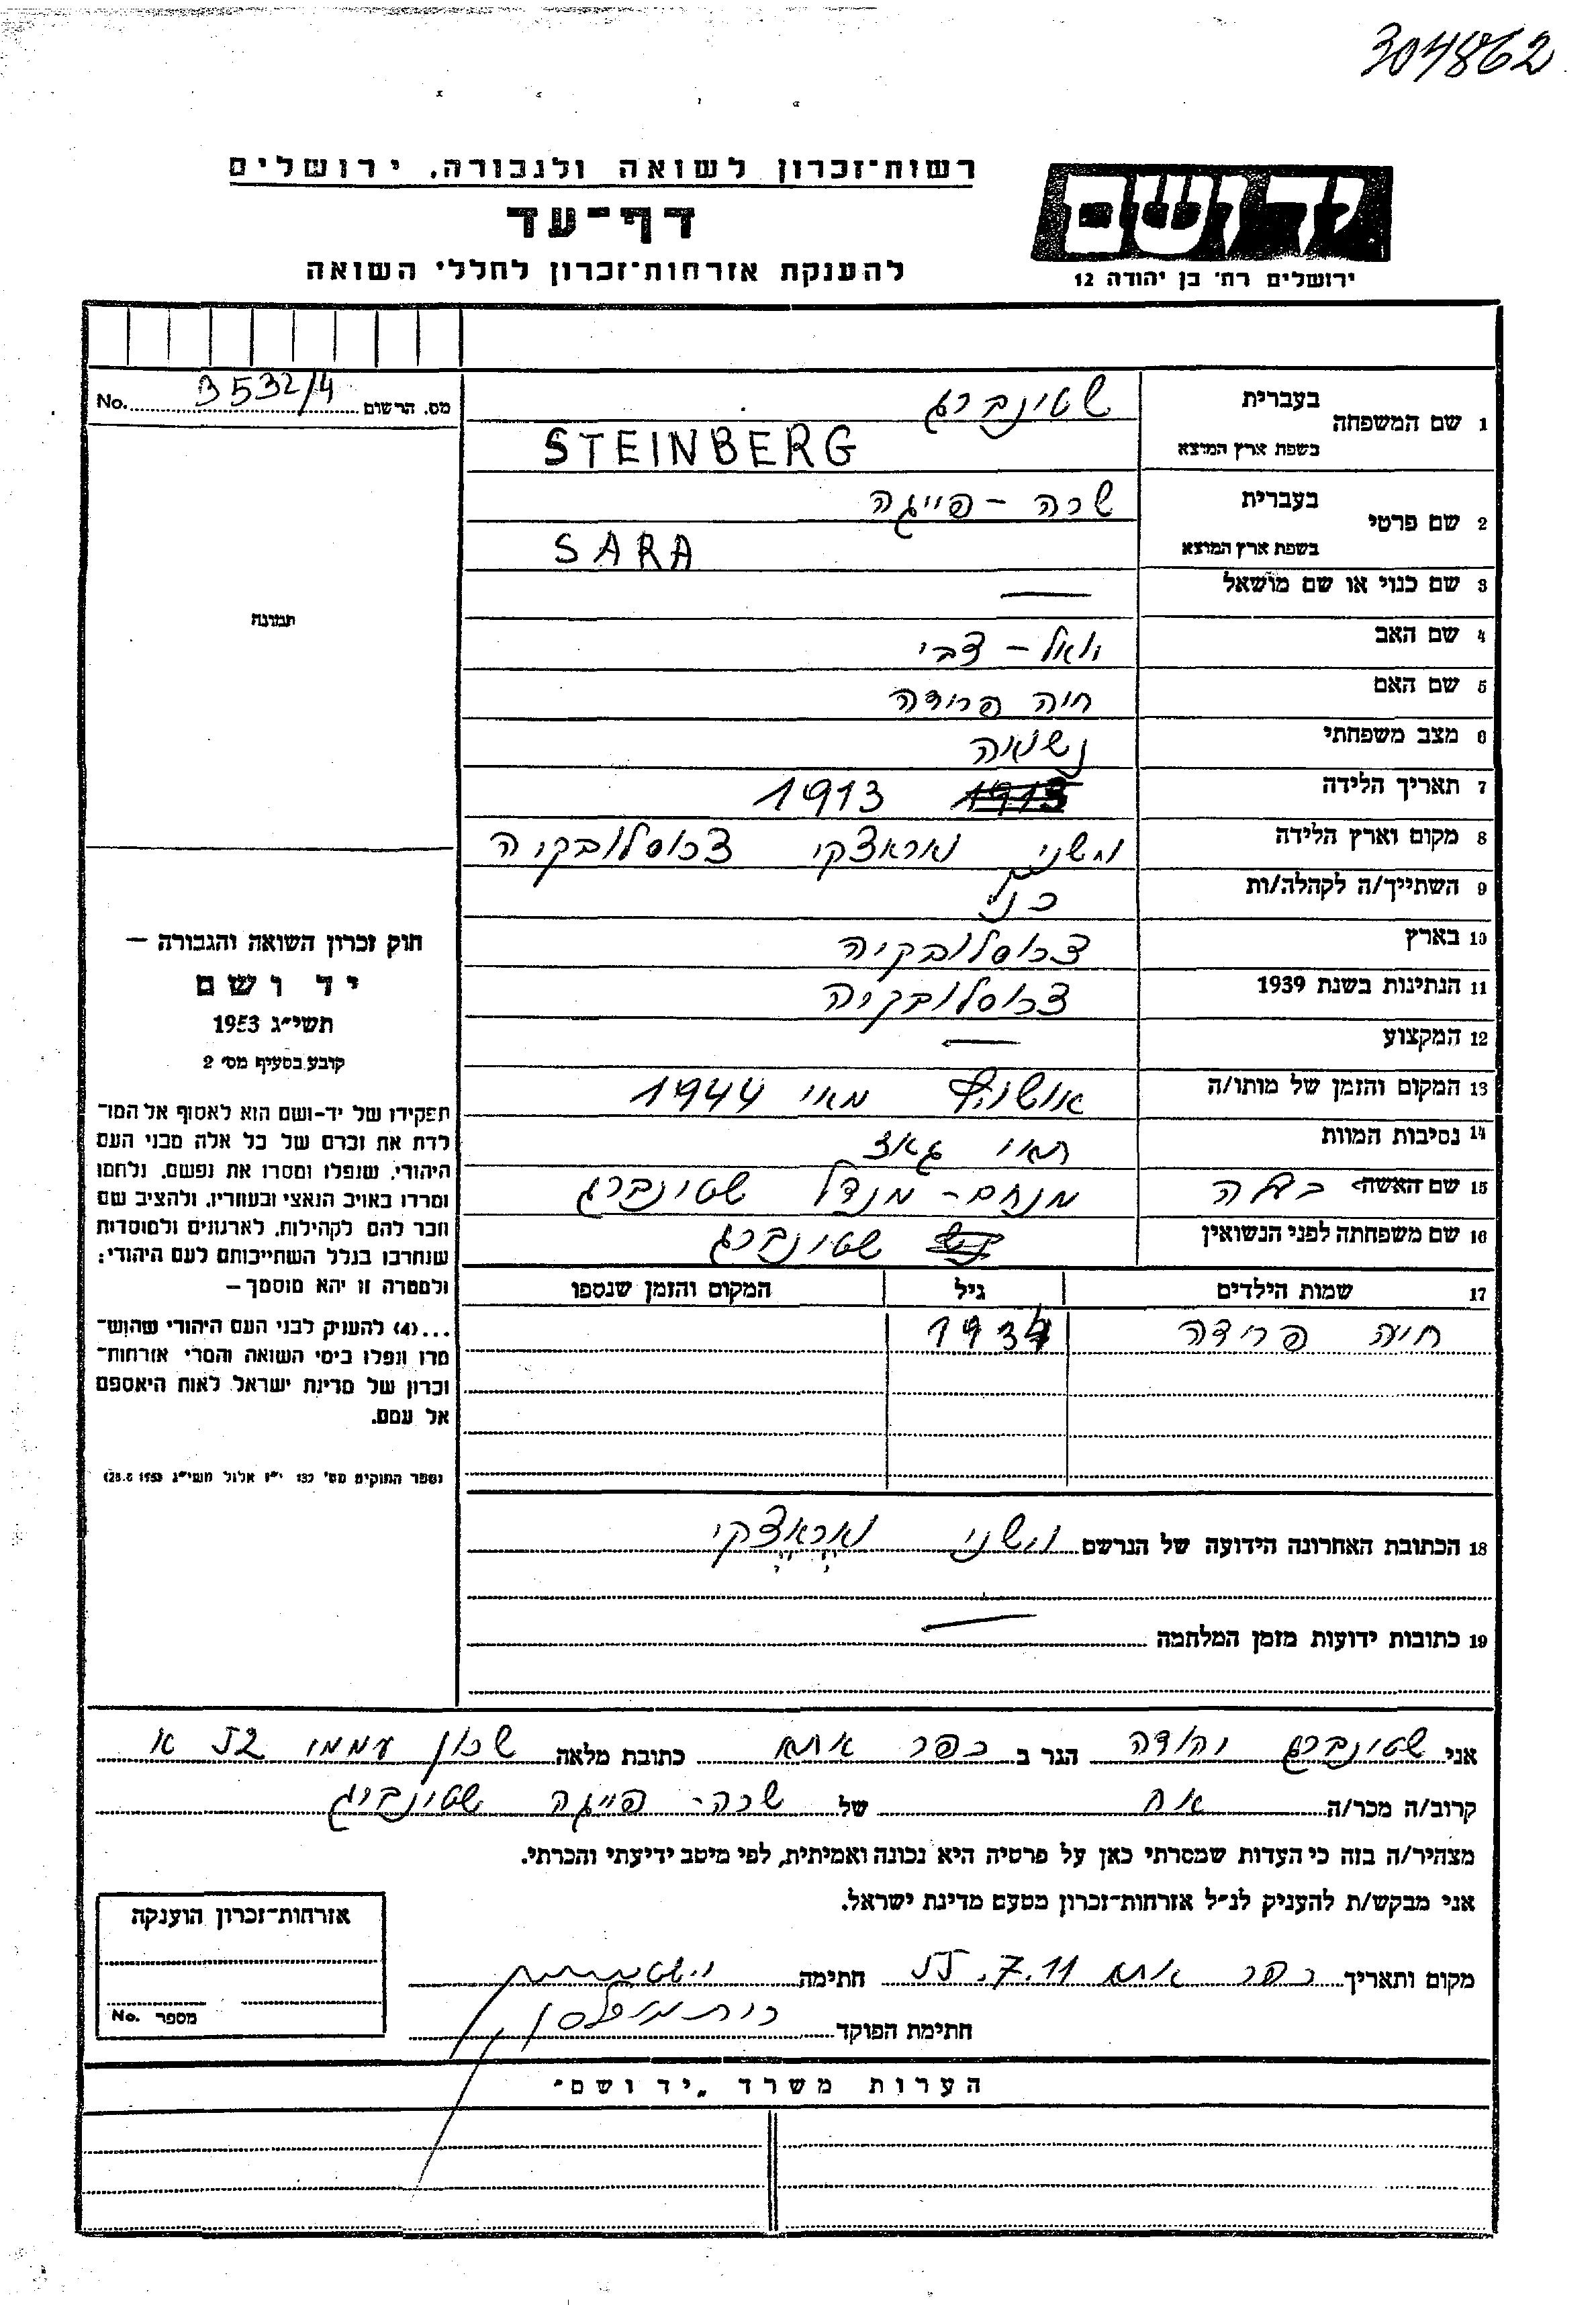 304862
רשות־זכרון לשואה ולגבורה, ירושלים
דף־עד
להענקת אזרחות־זכרון לחללי השואה
יד ושם
ירושלים רח' בן יהודה 12
מס. הרשום 3532/4 No.
1 שם המשפחה בעברית שטינברג
בשפת ארץ המוצא STEINBERG
2 שם פרטי בעברית שרה - פייגה
בשפת ארץ המוצא SARA
3 שם כנוי או שם מושאל —
4 שם האב יואל - צבי
5 שם האם חיה פרידה
6 מצב משפחתי נשואה
7 תאריך הלידה 1913 1913
8 מקום וארץ הלידה צכוסלובקיה
9 השתייך/ה לקהלה/ות כנ"ל
10 בארץ צכוסלובקיה
11 הנתינות בשנת 1939 צכוסלובקיה
12 המקצוע —
13 המקום והזמן של מותו/ה אושויץ מאי 1944
14 נסיבות המוות תאי גאז
15 שם האשה בעלה מנחם - מנדל שטינברג
16 שם משפחתה לפני הנשואין שטינברג
17 שמות הילדים גיל המקום והזמן שנספו
חיה פרידה 1934
18 הכתובת האחרונה הידועה של הנרשם
19 כתובות ידועות מזמן המלחמה —
תמונה
חוק זכרון השואה והגבורה —
יד ושם
תשי"ג 1953
קובע בסעיף מס' 2
תפקידו של יד-ושם הוא לאסוף אל המו־
לדת את זכרם של כל אלה מבני העם
היהודי, שנפלו ומסרו את נפשם, נלחמו
ומרדו באויב הנאצי ובעוזריו, ולהציב שם
וזכר להם לקהילות, לארגונים ולמוסדות
שנחרבו בגלל השתייכותם לעם היהודי;
ולמטרה זו יהא מוסמך —
...(4) להעניק לבני העם היהודי שהוש־
מדו ונפלו בימי השואה והמרי אזרחות־
זכרון של מדינת ישראל לאות היאספם
אל עמם.
(ספר החוקים מס' 132 י"ז אלול תשי"ג 28.8.1953)
אני שטינברג יהודה הגר ב כפר אתא כתובת מלאה שכון עממי 52 א
קרוב/ה מכר/ה אח של שרה - פייגה שטינברג
מצהיר/ה בזה כי העדות שמסרתי כאן על פרטיה היא נכונה ואמיתית, לפי מיטב ידיעתי והכרתי.
אני מבקש/ת להעניק לנ״ל אזרחות־זכרון מטעם מדינת ישראל.
מקום ותאריך כפר אתא 11.7.55 חתימה
חתימת הפוקד
אזרחות־זכרון הוענקה
מספר No.
הערות משרד „יד ושם"